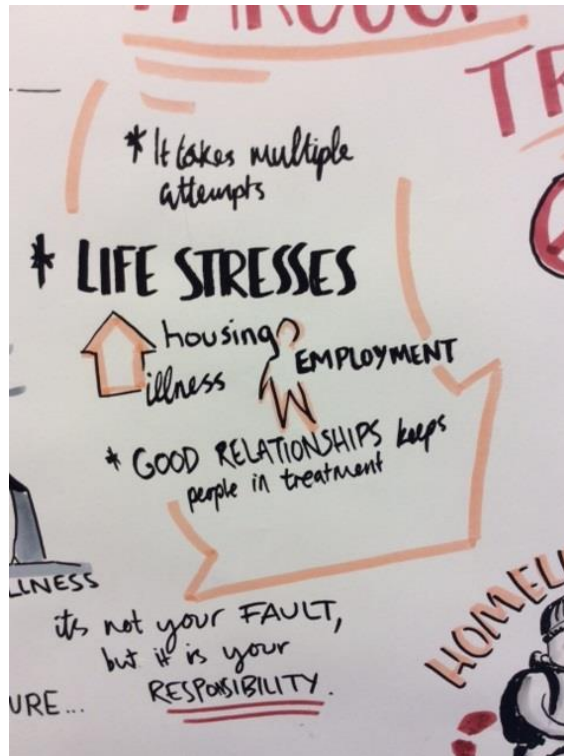 * It takes multiple
attempts
* LIFE STRESSES
housing
illness
EMPLOYMENT
* GOOD RELATIONSHIPS keeps
people in treatment
its not your FAULT,
but it is your
RESPONSIBILITY.